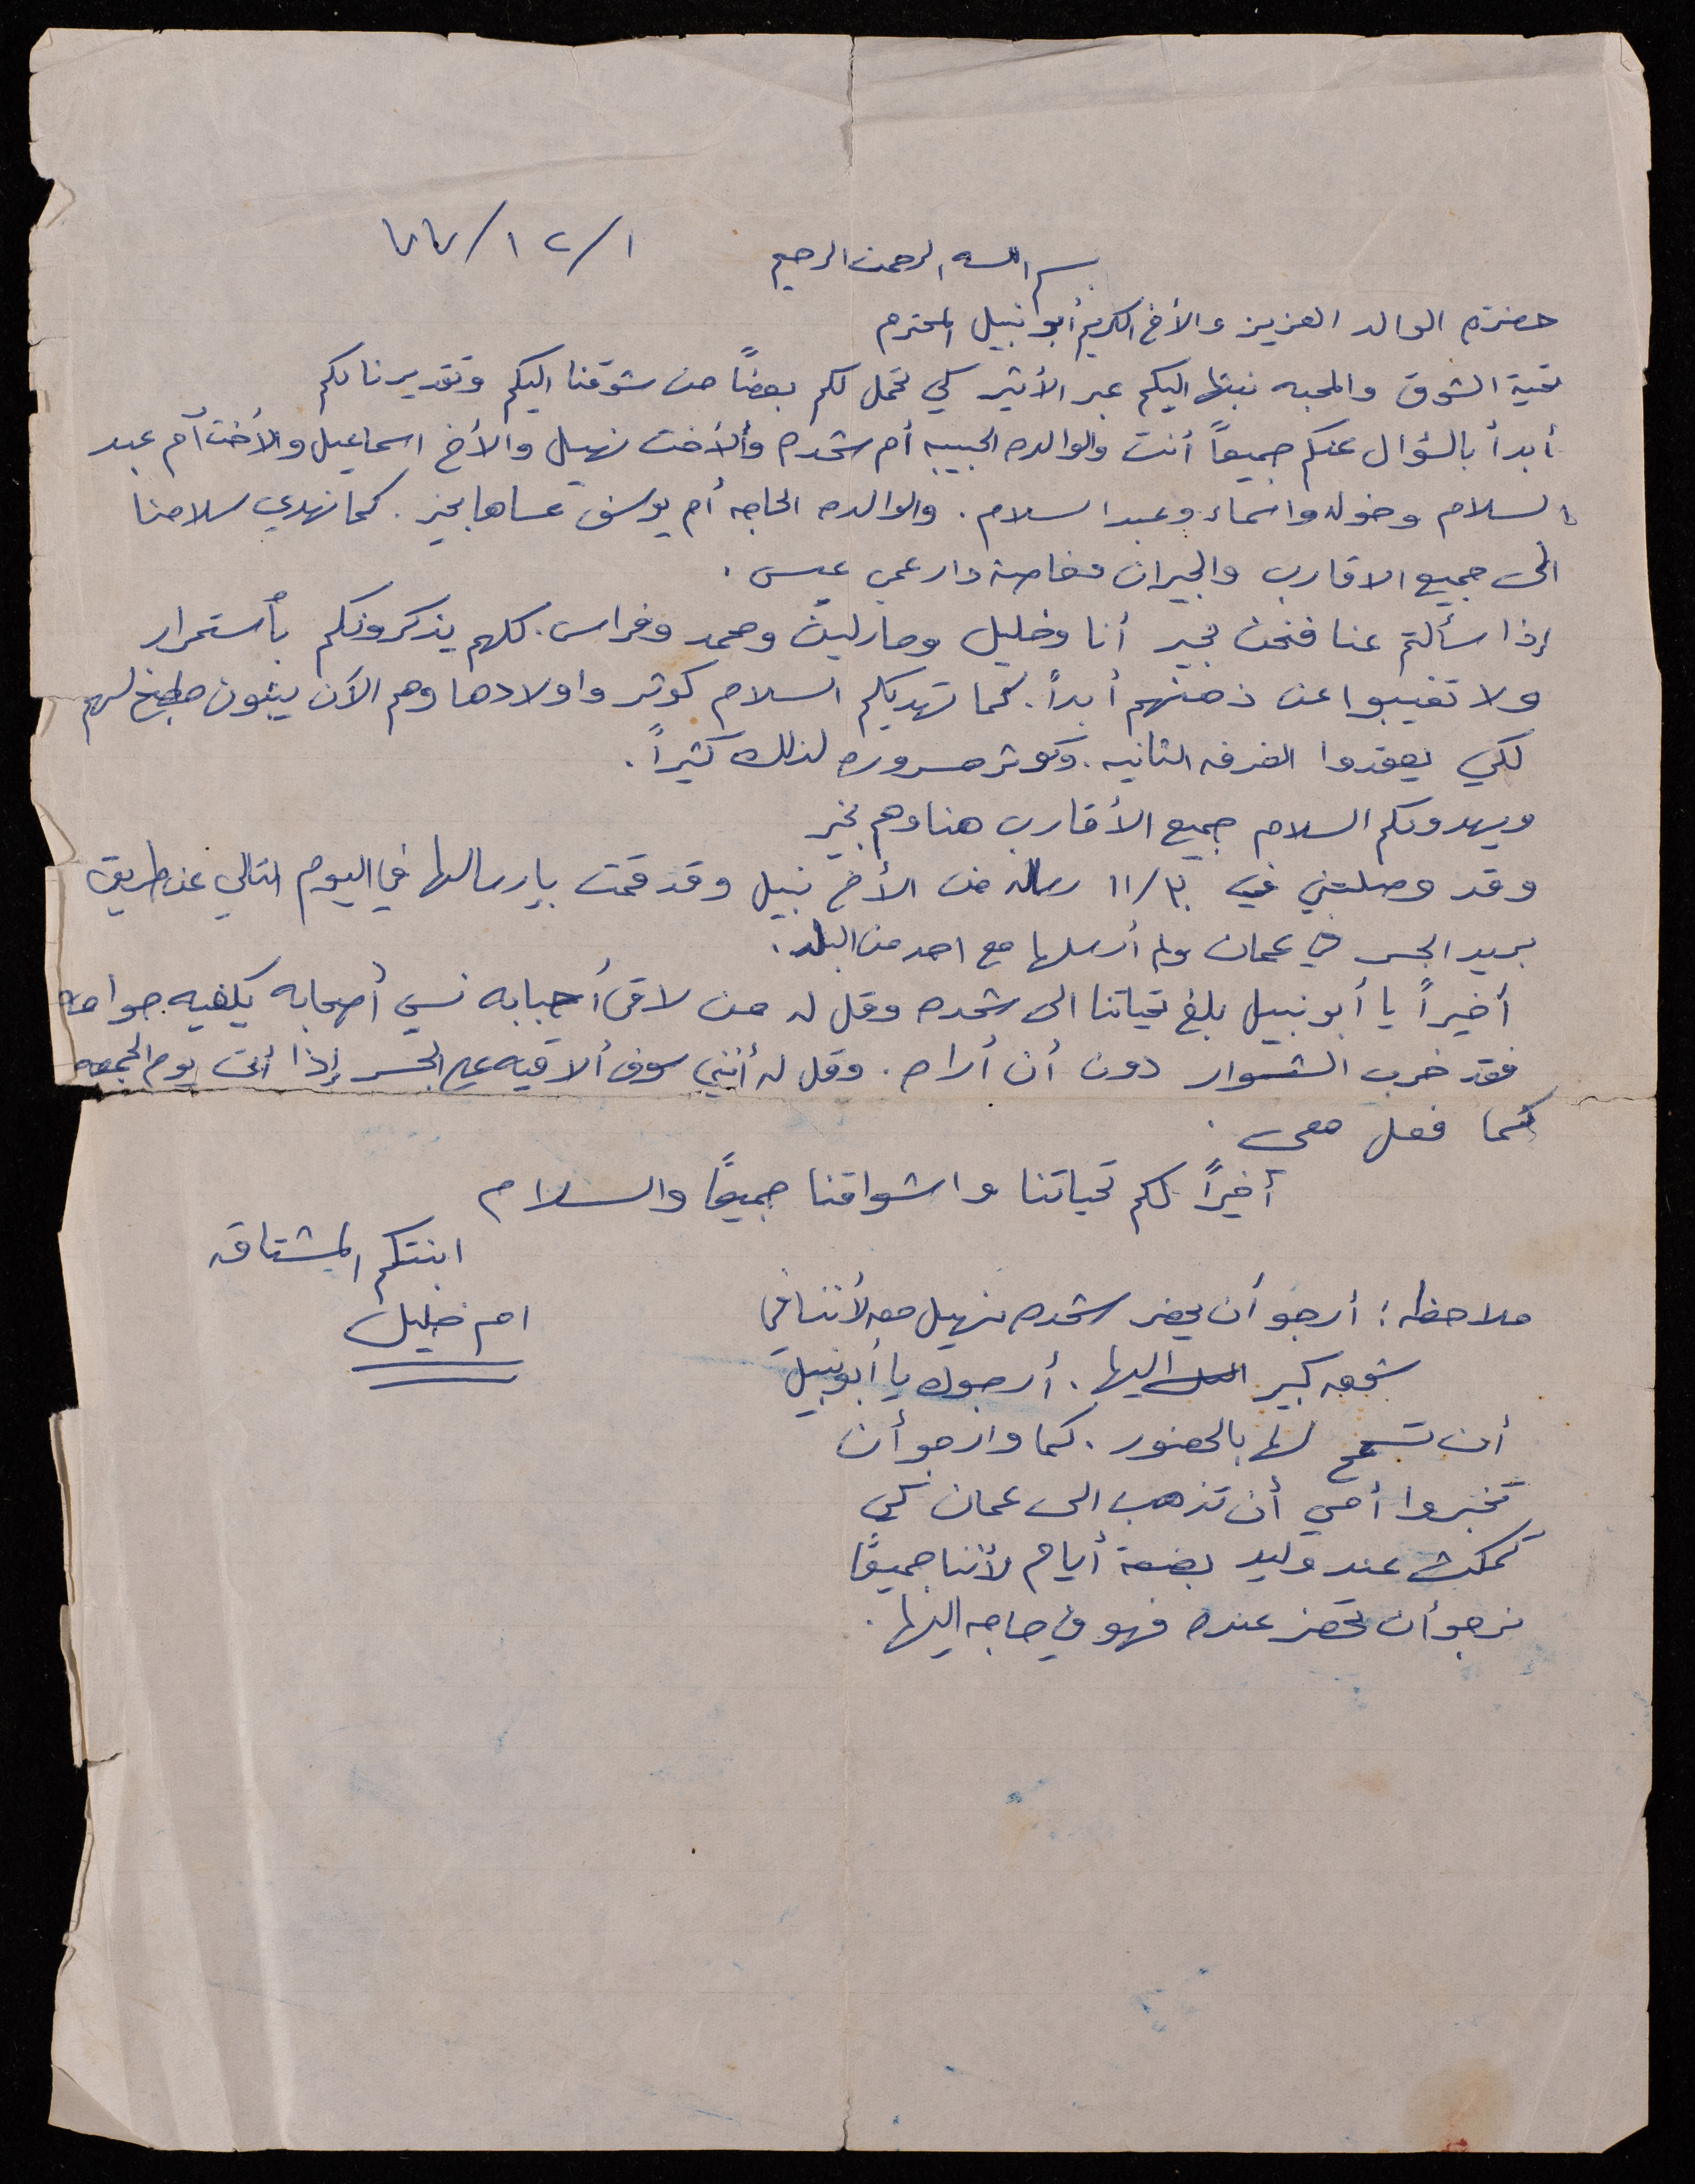 ١/١٢/٧٧
بسم الله الرحمن الرحيم
حضرة الوالد العزيز والأخ الكريم أبو نبيل المحترم
تحية الشوق والمحبه نبثها اليكم عبر الأثير كي تحمل لكم بعضاً من شوقنا اليكم وتقديرنا لكم
أبدأ بالسؤال عنكم جميعاً أنت والوالده الحبيبه أم شحده والأخت نهيل والأخ اسماعيل والأخت أم عبد
السلام وخوله واسماء وعبد السلام. والوالده الحاجه أم يوسف عساها بخير. كما نهدي سلامنا
الى جميع الاقارب والجيران وخاصة دار عمي عيسى.
إذا سألتم عنا فنحن بخير أنا وخليل ومارلين ومحمد وفراس. كلهم يذكرونكم بأستمرار
ولا تغيبوا عن ذهنهم أبداً. كما تهديكم السلام كوثر واولادها وهم الآن يبنون مطبخ لهم
لكي يعقدوا الغرفه الثانيه. وكوثر مسروره لذلك كثيراً.
ويهدونكم السلام جميع الأقارب هنا وهم بخير
وقد وصلتني في ١١/٣٠ رساله من الأخ نبيل وقد قمت بإرسالها في اليوم التالي عن طريق
بريد الجسر في عمان ولم أرسلها مع احد من البلد.
أخيراً يا أبو نبيل بلغ تحياتنا الى شحده وقل له من لاقى أحبابه نسي أصحابه يكفيه جوامه
فقد خرب الشوار دون أن أراه. وقل له أنني سوف ألاقيه على الجسر إذا أتى يوم الجمعه
كما فعل معي.
أخيراً لكم تحياتنا واشواقنا جميعاً والسلام
ابنتكم المشتاقه
ام خليل
ملاحظه: أرجو أن يحضر شحده نهيل معه لأننا في
شوق كبير اليها. أرجوك يا أبو نبيل
أن تسمح لها بالحضور. كما وارجو أن
تخبروا أمي أن تذهب الى عمان كي
تمكث عند وليد بضعة أيام لأننا جميعاً
نرجو أن تحضر عنده فهو في حاجه اليها.